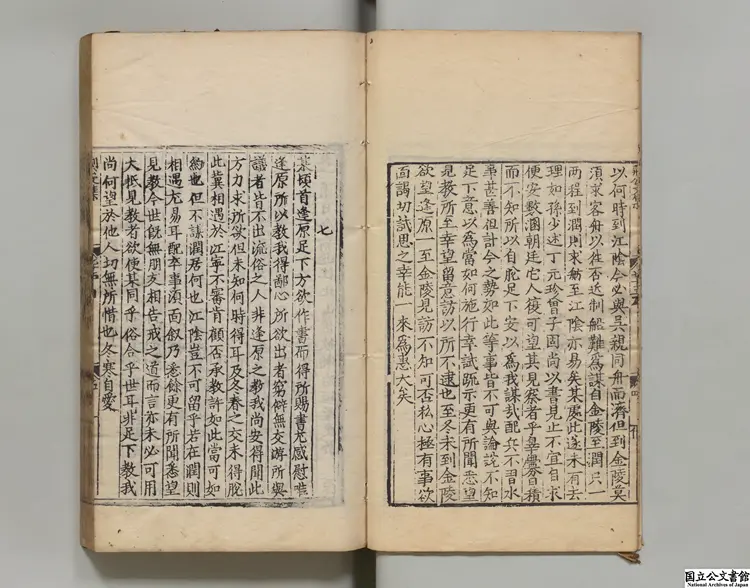 以何時到江陰今必與吳親同舟而濟但到金陵莫
須求客舟以往否近制船難為謀自金陵至潤只一
兩程到潤則求舫至江陰亦易矣某處此遂未有去
理如孫少述丁元珍曾子固尚以書見止不宜自求
便安數溷朝廷它人復可望其見察者乎臯釁日積
而不知所以自脫足下安以爲我謀哉配兵不習水
事甚善但計今之勢如此等事皆不可與論說不知
足下意以爲當如何施行幸試疏示更有所聞悉望
見教所至幸望留意訪以所不逮也至冬末到金陵
欲望逢原一至金陵見訪不知可否私心極有事欲
面謁切試思之幸能一來爲惠大矣
七
某頓首逢原足下方欲作書而得所賜書尤感慰唯
逢原所以教我得鄙心所欲出者窮僻無交游所與
議者皆不出流俗之人非逢原之教我尚安得聞此
方力求所欲但未知何時得耳及冬春之交未得脫
此冀相遇於江寧不審肯顧否承教許如此當可如
約也但不謀潤居何也江陰豈不可留乎若在潤則
相遇尤易耳配卒事須面敘乃悉餘更有所聞悉望
見教今世既無朋友相告戒之道而言亦未必可用
大抵見教者欲使某同乎俗合乎世耳非足下教我
尚何望於他人切無所惜也冬寒自愛
国立公文書館
National Archives of Japan